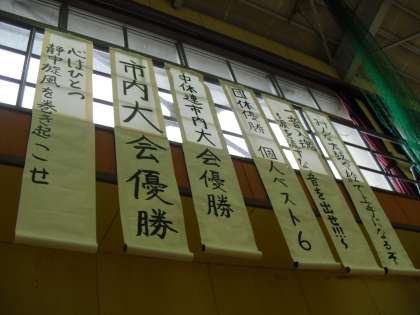 上手になるぞ
音を出せ!!!
団体優勝 個人ベスト6
中体連市内大会優勝
市内大会優勝
心はひとつ
静中旋風を巻き起こせ